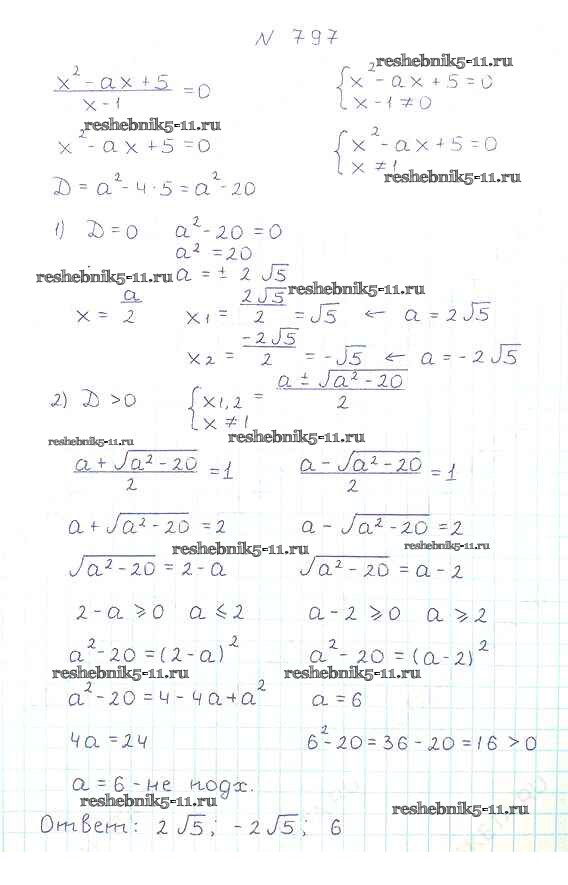 N 797
reshebnik5-11.ru
(x² - ax + 5)/(x - 1) = 0 { x² - ax + 5 = 0
x - 1 ≠ 0
reshebnik5-11.ru
x² - ax + 5 = 0 { x² - ax + 5 = 0
x ≠ 1
reshebnik5-11.ru
D = a² - 4·5 = a² - 20
1) D = 0 a² - 20 = 0
a² = 20
reshebnik5-11.ru a = ± 2√5
reshebnik5-11.ru
x = a/2 x1 = 2√5/2 = √5 ← a = 2√5
x2 = -2√5/2 = -√5 ← a = -2√5
2) D > 0 { x1,2 = (a ± √(a² - 20))/2
x ≠ 1
reshebnik5-11.ru reshebnik5-11.ru
(a + √(a² - 20))/2 = 1 (a - √(a² - 20))/2 = 1
a + √(a² - 20) = 2 a - √(a² - 20) = 2
reshebnik5-11.ru reshebnik5-11.ru
√(a² - 20) = 2 - a √(a² - 20) = a - 2
2 - a ⩾ 0 a ⩽ 2 a - 2 ⩾ 0 a ⩾ 2
a² - 20 = (2 - a)² a² - 20 = (a - 2)²
reshebnik5-11.ru reshebnik5-11.ru
a² - 20 = 4 - 4a + a² a = 6
4a = 24 6² - 20 = 36 - 20 = 16 > 0
a = 6 - не подх.
reshebnik5-11.ru reshebnik5-11.ru
Ответ: 2√5; -2√5; 6